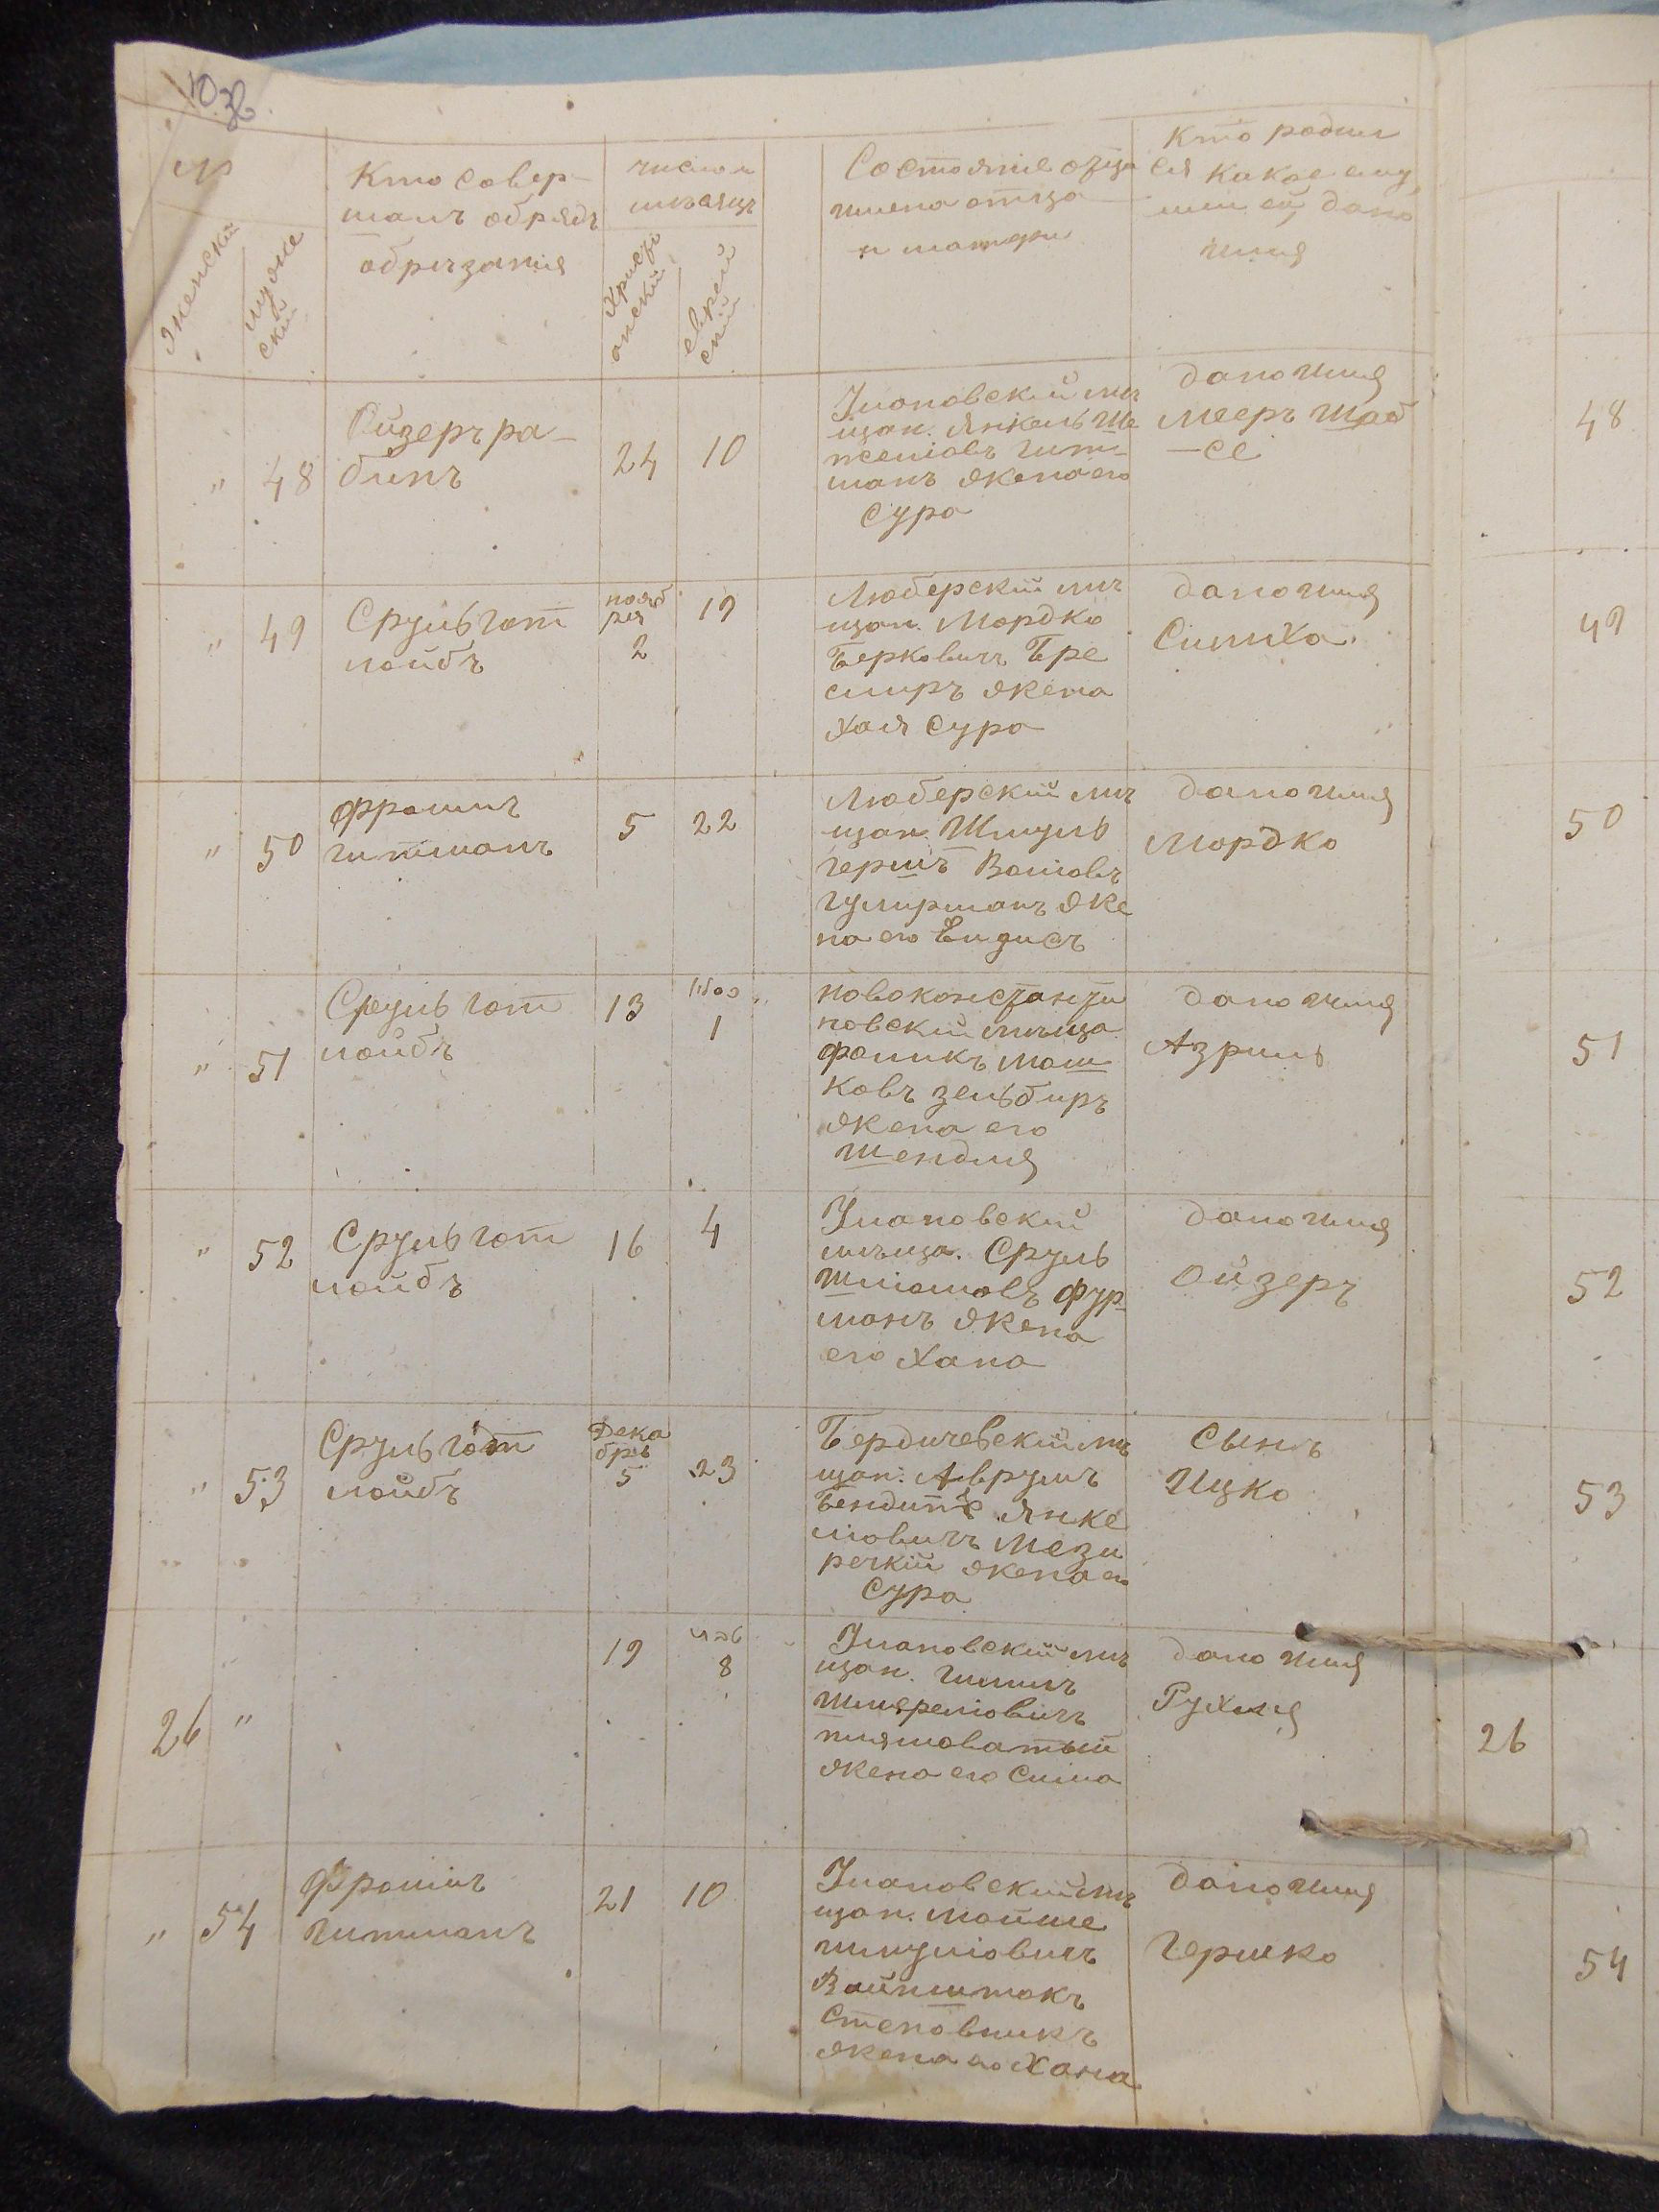 №
Кто совер-
шалъ обрядъ
обрѣзанія
число и
мѣсяцъ
Состояніе отца
имена отца
и матери
Кто родил
ся какое ему
или ей дано
имя
женскій
муже
скій
Христі
анскій
еврей
скій
" 48
Ойзеръ ра-
бинъ
24
10
Улановскій мѣ
щан. Янкель Ше
пселіовъ Гит-
манъ жена его
Сура
дано имя
Мееръ Шаб
-се
48
" 49
Сруль Гот
лойбъ
нояб
ря
2
19
Люберскій мѣ
щан. Мордко
Берковичъ Бре
слиръ жена
Хая Сура
дано имя
Симха.
49
" 50
Фроимъ
Гитманъ
5
22
Люберскій мѣ
щан. Шмуль
Гершъ Волiовъ
жe
на его
дано имя
Мордко
50
" 51
Сруль Гот
лойбъ
13
כסלו
1
Новоконстанти
новскій мѣща
Фоликъ Мош
ковъ Зельбиръ
жена его
Шендля
дано имя
Азриль
51
" 52
Сруль Гот
лойбъ
16
4
Улановскій
мѣща. Сруль
Шліомовъ Фур-
манъ жена
его Хана
дано имя
Ойзеръ
52
" 53
Сруль Гот
лойбъ
Дека
брь
5
23
Бердичевскій мѣ
щан. Аврумъ
Бендитъ Янке
ліовичъ Мези
речкій жена его
Сура
сынъ
Ицко
53
26 "
19
טבת
8
Улановскій мѣ
щан.
Шмереліовичъ
жена его Сима
дано имя
Рухля
26
" 54
Фроимъ
Гитманъ
21
10
Улановскій мѣ
щан. Мойше
Шмуліовичъ
Вайнштокъ
Степовикъ
жена его Хана
дано имя
Гершко
54